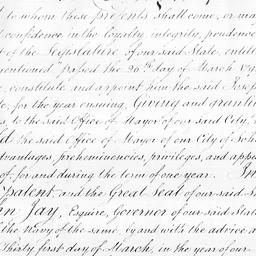 to whom these presents shall come, or may
confidence in the Loyalty, integrity, prudence
of the Legislature of our said State, entitl
mentioned" passed the 26th day of March 179
constitute and appoint him the said Joseph
for the year ensuing, Giving and grantin
to the said Office of Mayor of our said City,
the said Office of Mayor of our City of
advantages, preheminencies, privileges, and app
of, for and during the term of one year. In
patent, and the Great Seal of our said S
n Jay, Esquire, Governor of our said Stat
the Navy of the same, by and with the advice a
Thirty first day of March, in the year of our